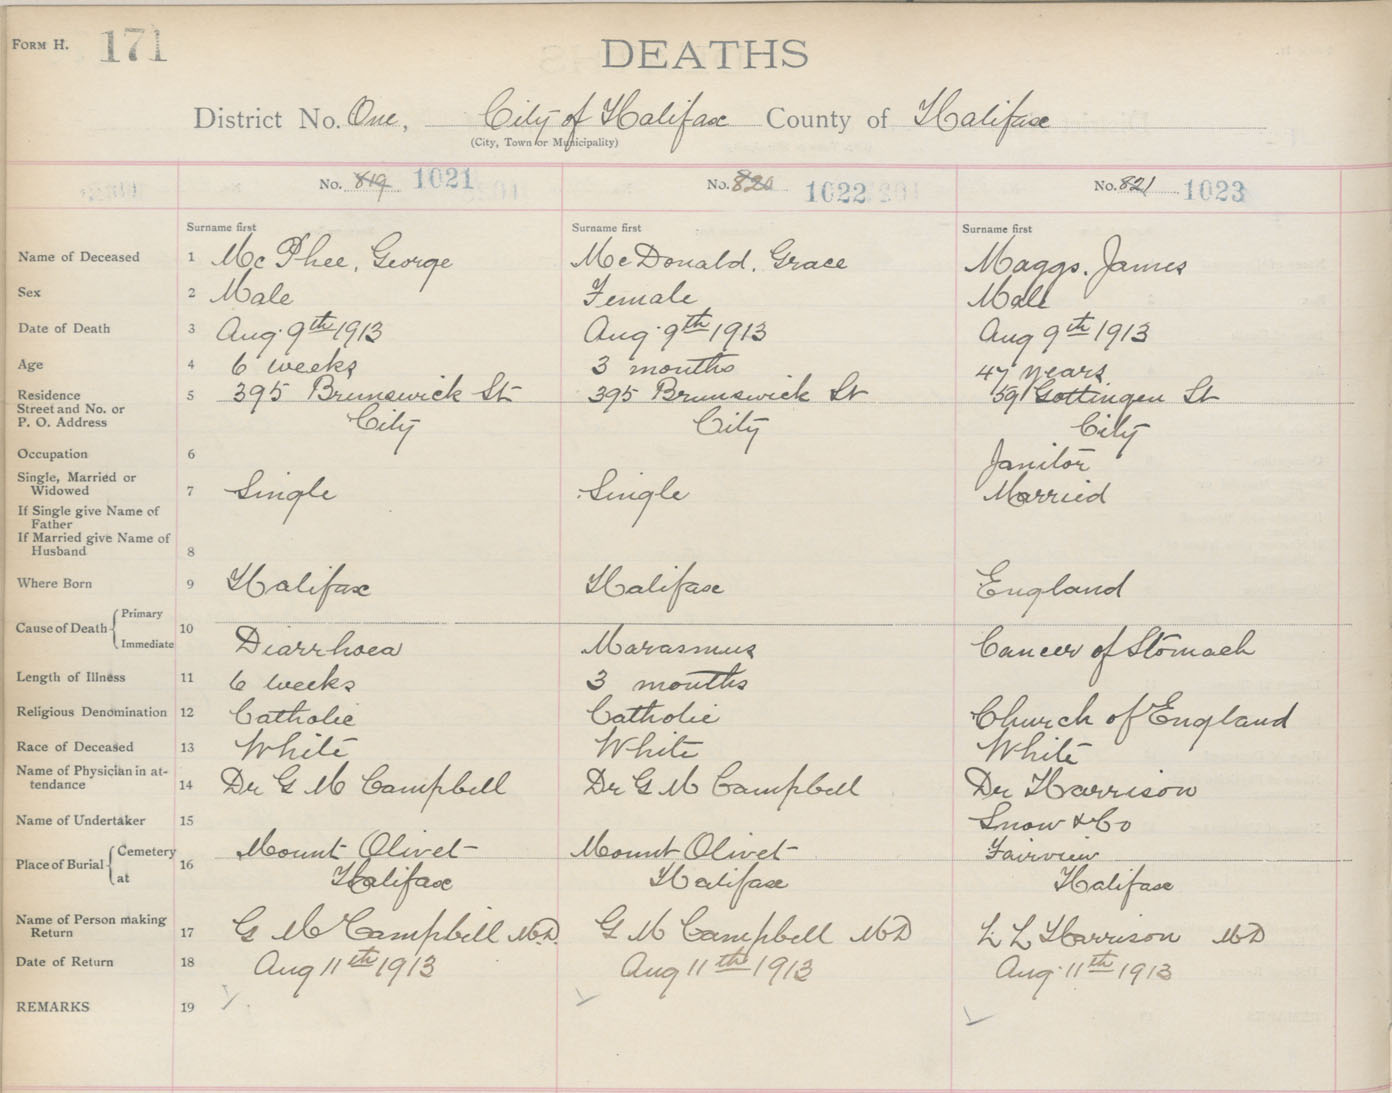 FORM H. 171
DEATHS
District No. One, City of Halifax County of Halifax
(City, Town or Municipality)
No. 819 1021 No. 820 1022 No. 821 1023
Surname first Surname first Surname first
Name of Deceased 1 McPhee, George McDonald, Grace Maggs, James
Sex 2 Male Female Male
Date of Death 3 Aug. 9th 1913 Aug. 9th 1913 Aug 9th 1913
Age 4 6 weeks 3 months 47 years
Residence 5 395 Brunswick St 395 Brunswick St 59 Gottingen St
Street and No. or
P. O. Address City City City
Occupation 6 Janitor
Single, Married or
Widowed 7 Single Single Married
If Single give Name of
Father
If Married give Name of
Husband 8
Where Born 9 Halifax Halifax England
Cause of Death Primary 10
Immediate Diarrhoea Marasmus Cancer of Stomach
Length of Illness 11 6 weeks 3 months
Religious Denomination 12 Catholic Catholic Church of England
Race of Deceased 13 White White White
Name of Physician in at-
tendance 14 Dr G M Campbell Dr G M Campbell Dr Harrison
Name of Undertaker 15 Snow & Co
Place of Burial Cemetery 16 Mount Olivet Mount Olivet Fairview
at Halifax Halifax Halifax
Name of Person making
Return 17 G M Campbell M.D. G M Campbell MD L L Harrison MD
Date of Return 18 Aug 11th 1913 Aug 11th 1913 Aug. 11th 1913
REMARKS 19